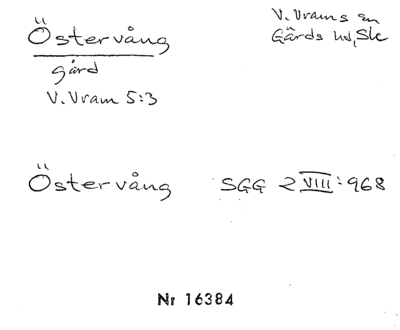 Östervång
V. Vrams sn
Gärds hd, Sk
gård
V. Vram 5:3
Östervång SGG 2 VIII: 968
Nr 16384